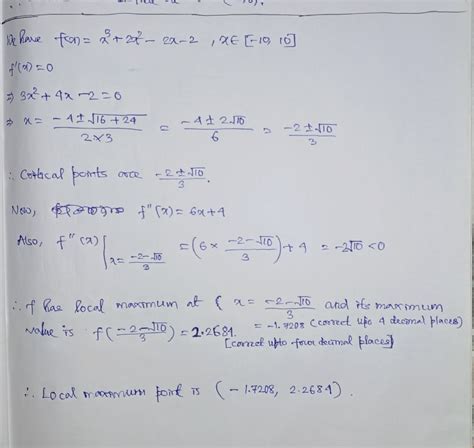 We have f(x) = x³ + 2x² - 2x - 2 , x ∈ [-10, 10]
f'(x) = 0
⇒ 3x² + 4x - 2 = 0
⇒ x = (-4 ± √16 + 24)/(2×3) = (-4 ± 2√10)/6 = (-2 ± √10)/3
∴ Critical points are (-2 ± √10)/3.
Now, f''(x) = 6x + 4
Also, f''(x)| x = (-2 - √10)/3 = (6 × (-2 - √10)/3) + 4 = -2√10 < 0
∴ f has local maximum at ( x = (-2 - √10)/3 and its maximum
= -1.7208 (correct upto 4 decimal places)
value is f((-2 - √10)/3) = 2.2684.
[correct upto four decimal places]
∴ Local maximum point is (-1.7208, 2.2684).